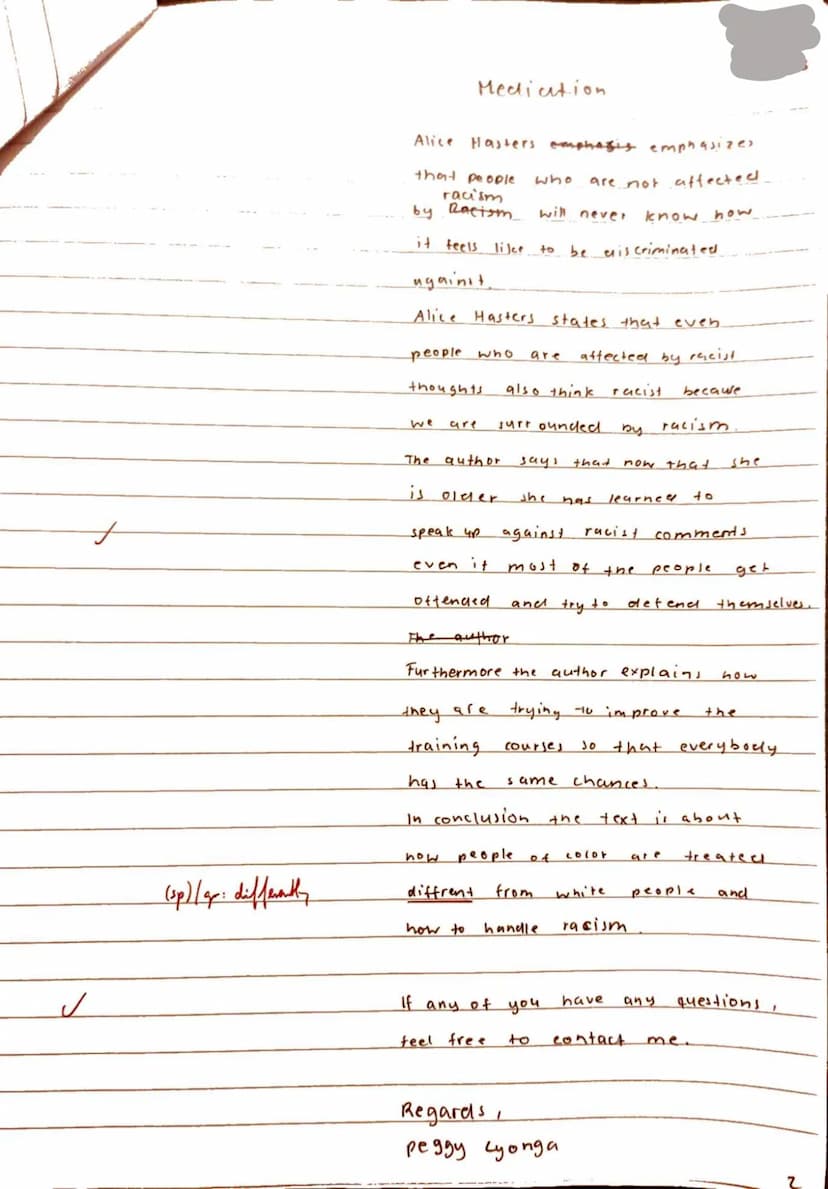 Mediation
Alice Hasters emphasis emphasizes
that people who are not affected
racism
by Racism will never know how
it feels like to be discriminated
against.
Alice Hasters states that even
people who are affected by racist
thoughts also think racist because
we are surrounded by racism.
The author says that now that she
is older she has learned to
speak up against racist comments
even if most of the people get
offended and try to defend themselves.
The author
Furthermore the author explains how
they are trying to improve the
training courses so that everybody
has the same chances.
In conclusion the text is about
how people of color are treated
(sp)/gr: differently diffrent from white people and
how to handle racism.
If any of you have any questions,
feel free to contact me.
Regards,
Peggy Lyonga
2